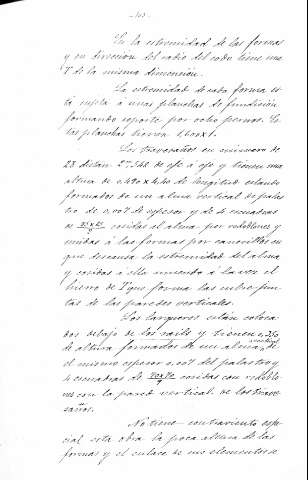 En la estremidad de las formas
y en direccion del radio del codo tiene una
T de la misma dimension.
La estremidad de cada forma es
tá sujeta á unas planchas de fundición
formando soporte por ocho pernos. Es
tas planchas tienen 1,60x1.
Los travesaños en número de
28 distan de eje á eje y tienen una
altura de 0,490 x 4,40 de longitud estando
formados de un alma vertical de palas
tro de 0,007 de espesor y de 4 escuadras
de cosidas al alma por roblones y
unidas á las formas por cartonillos en
que descansa la estremidad del alma
y cosidas á ella uniendo á la vez el
hierro de T que forma las cubrejun-
tas de las paredes verticales.
Los largueros están coloca
dos debajo de los rails y tienen 0,350
de altura formados de un alma vertical de
el mismo espesor 0,007 del palastro y
4 escuadras de unidas con roblo
nes con la pared vertical de los trave
saños.
No tiene contraviento espe-
cial esta obra la poca altura de las
formas y el enlace de sus elementos se